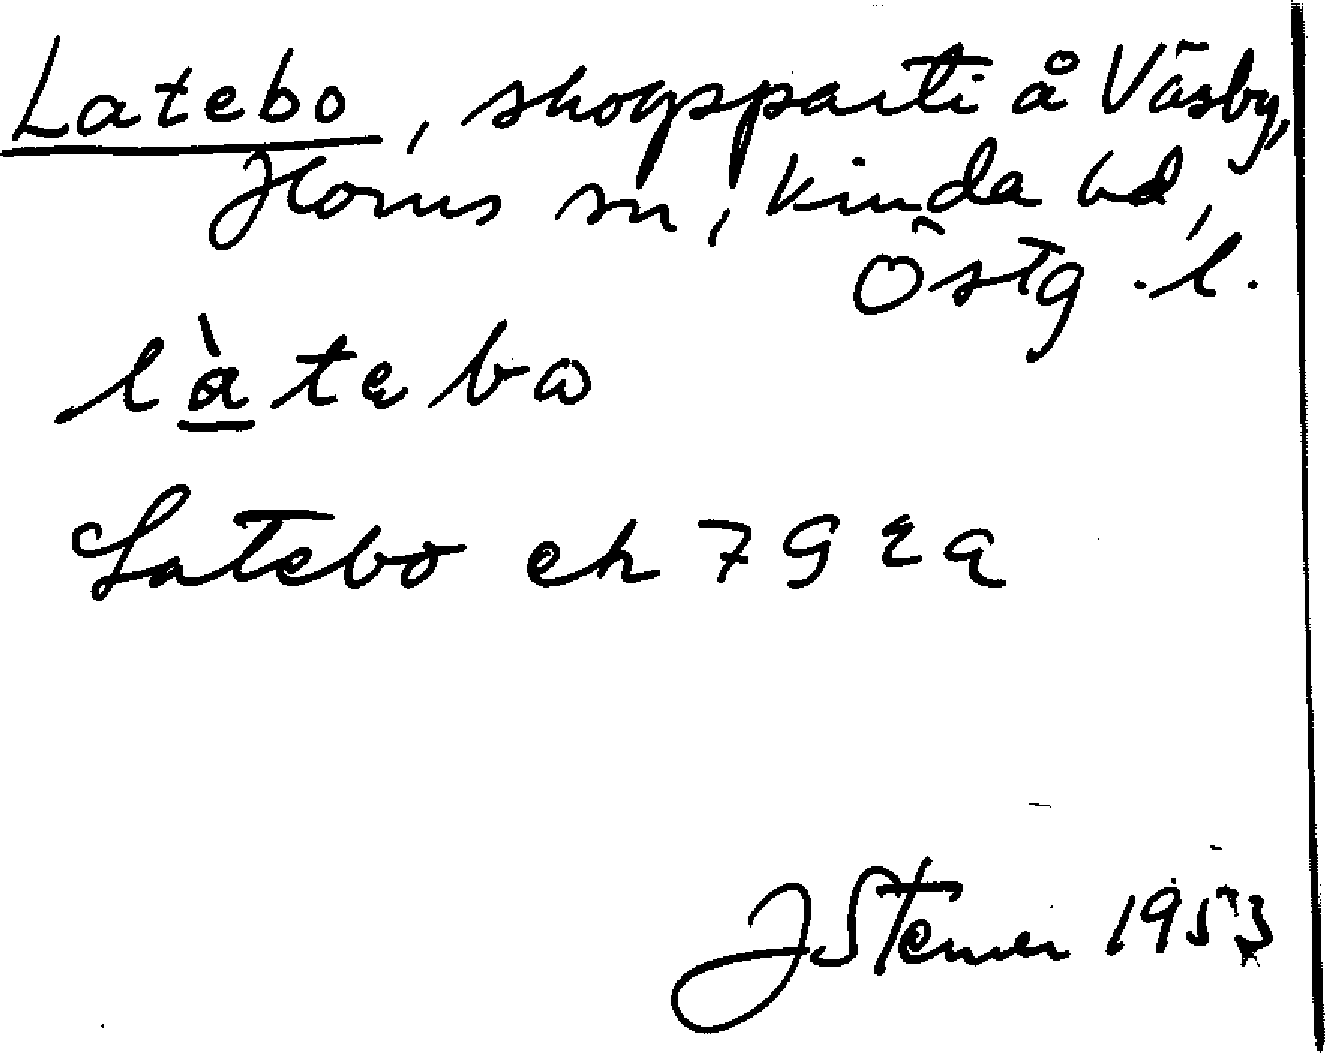 Latebo, skogsparti å Väsby,
Horns sn, Kinda hd,
Östg. l.
làtebo
Latebo ek 79
J Stener 1953